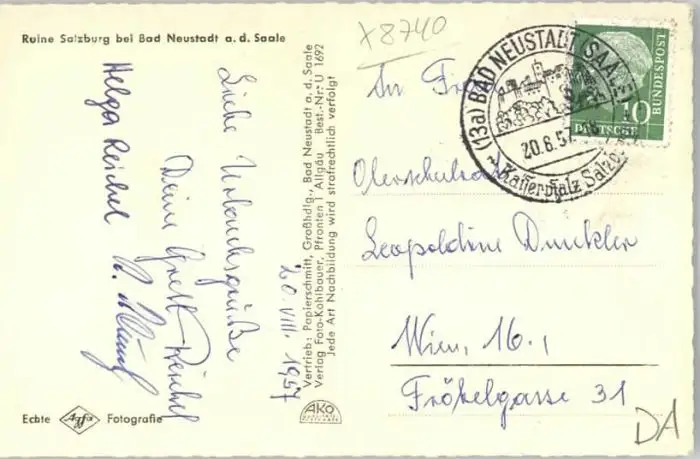 Ruine Salzburg bei Bad Neustadt a. d. Saale
x 8740
Liebe Urlaubsgrüße
Deine Grett Reichel
Helga Reichel
20. VIII. 1957
Vertrieb: Papierschmitt, Großhdlg., Bad Neustadt a. d. Saale
Verlag Foto-Kohlbauer, Pfronten 1 Allgäu Best.-Nr. U 1692
Jede Art Nachbildung wird strafrechtlich verfolgt
AKO
Echte Agfa Fotografie
(13a) BAD NEUSTADT (SAALE)
20.8.57
Kaiserpfalz Salzburg
10
DEUTSCHE
BUNDESPOST
An Frau
Oberschulrat
Leopoldine Dunkler
Wien, 16.,
Fröbelgasse 31
DA